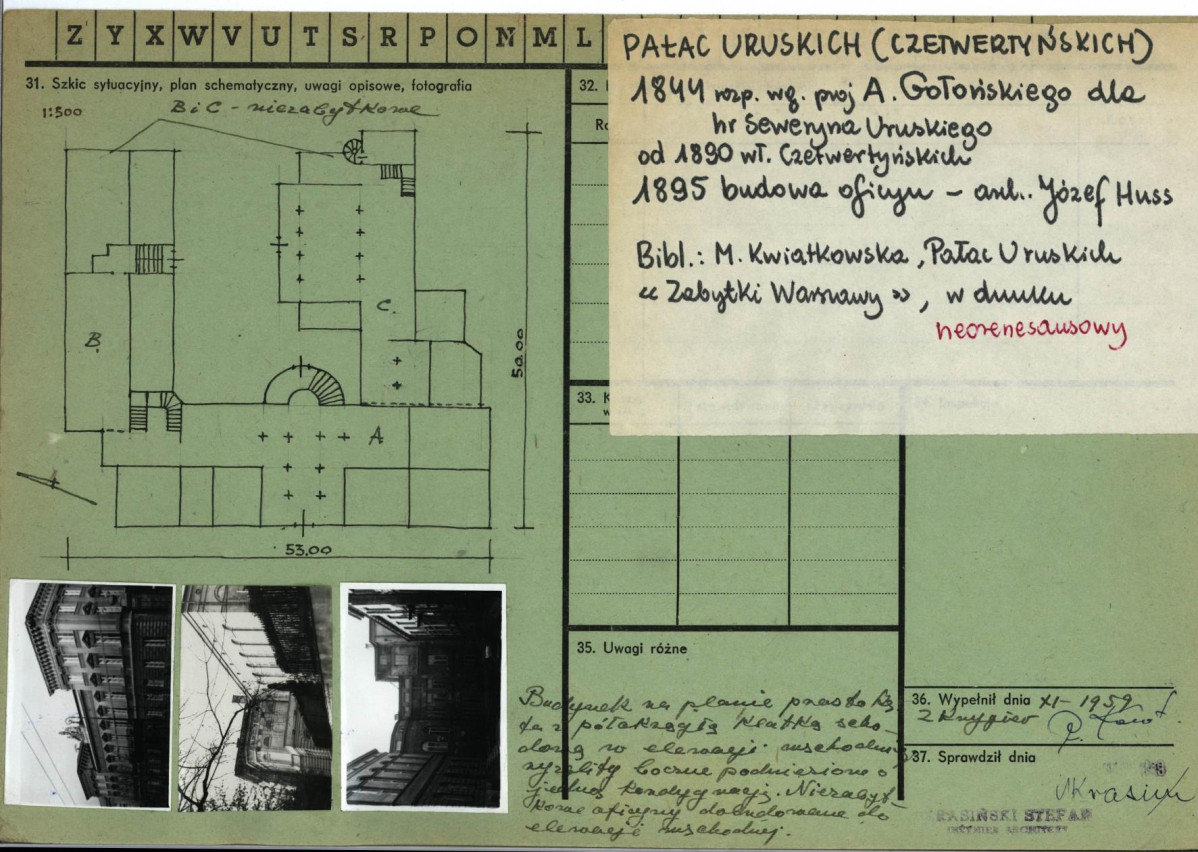 Z Y X W V U T S R P O N M L
31. Szkic sytuacyjny, plan schematyczny, uwagi opisowe, fotografia
1:500
B i C - niezabytkowe
C.
B.
A.
50.00
53,00
32.
PAŁAC URUSKICH (CZETWERTYŃSKICH)
1844 rozp. wg. proj A. Gołońskiego dla
hr Seweryna Uruskiego
od 1890 wł. Czetwertyńskich
1895 budowa oficyn - arch. Józef Huss
Bibl.: M. Kwiatkowska, Pałac Uruskich
« Zabytki Warszawy », w druku
neorenesansowy
33. K
w
35. Uwagi różne
Budynek na planie prostoką
ta z półokrągłą klatką scho-
dową w elewacji wschodniej
ryzality boczne podniesione o
jedną kondygnację. Niezabyt-
kowe oficyny dobudowane do
elewacji wschodniej.
36. Wypełnił dnia XI-1959
37. Sprawdził dnia
KRASIŃSKI STEFAN
INŻYNIER ARCHITEKT